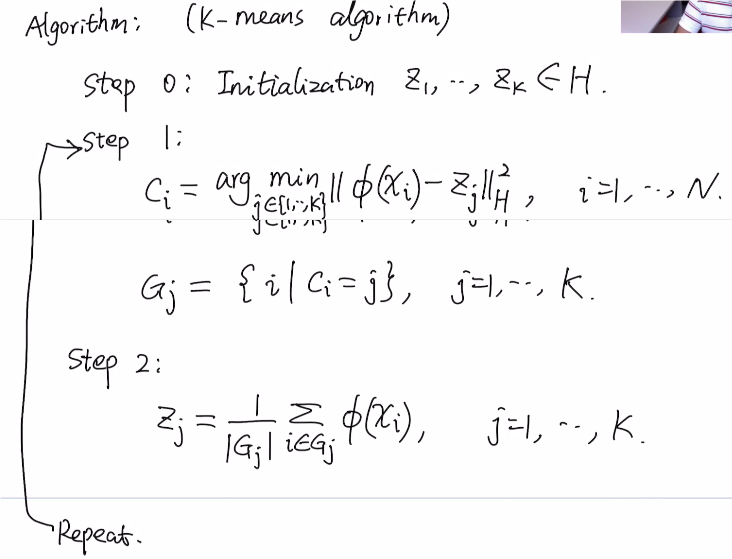 Algorithm: (K-means algorithm)
Step 0: Initialization Z₁, ··, Z_K ∈ H.
Step 1:
C_i = arg min_{j∈{1,··,K}} || ϕ(x_i) - Z_j ||²_H , i=1, ··, N.
G_j = { i | C_i = j }, j=1, ··, K.
Step 2:
Z_j = 1/|G_j| Σ_{i∈G_j} ϕ(x_i), j=1, ··, K.
Repeat.